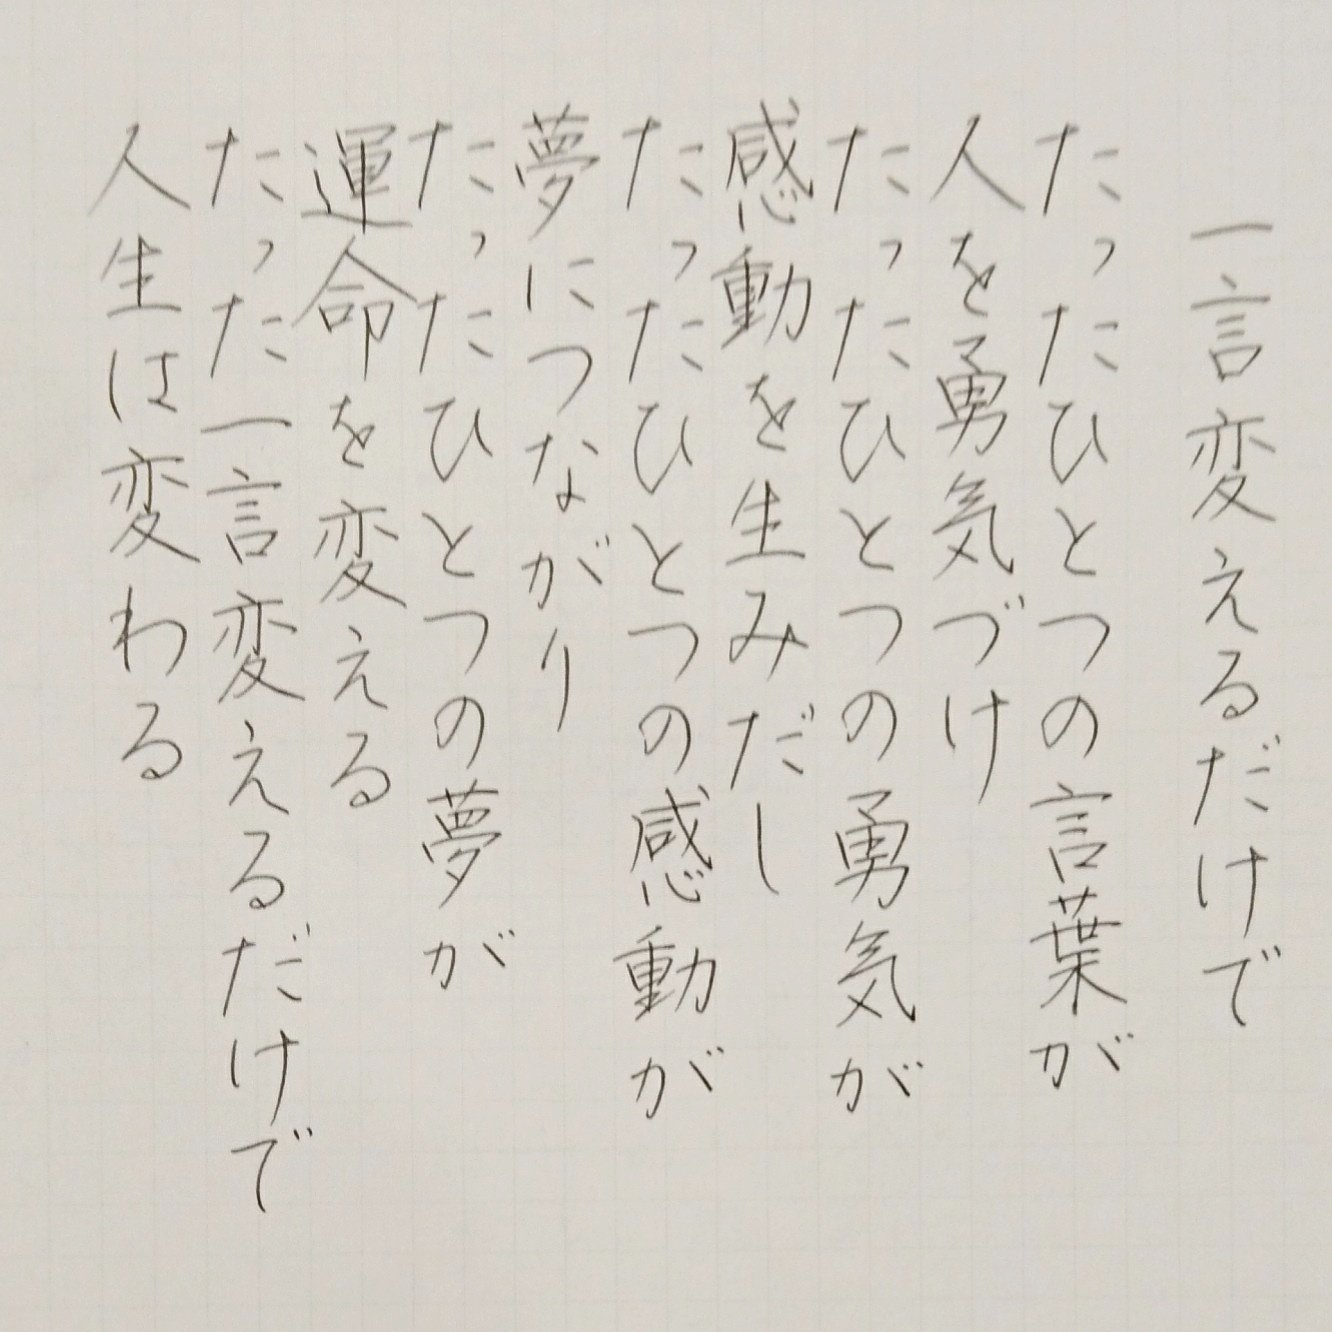 一言変えるだけで
たったひとつの言葉が
人を勇気づけ
たったひとつの勇気が
感動を生みだし
たったひとつの感動が
夢につながり
たったひとつの夢が
運命を変える
たった一言変えるだけで
人生は変わる